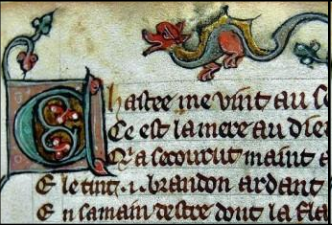 Chastee me vint au se
Ce est la mere au dieu
Q'a secourut maint a
E le ting .i. brandon ardant
E n sa main destre dont la fla